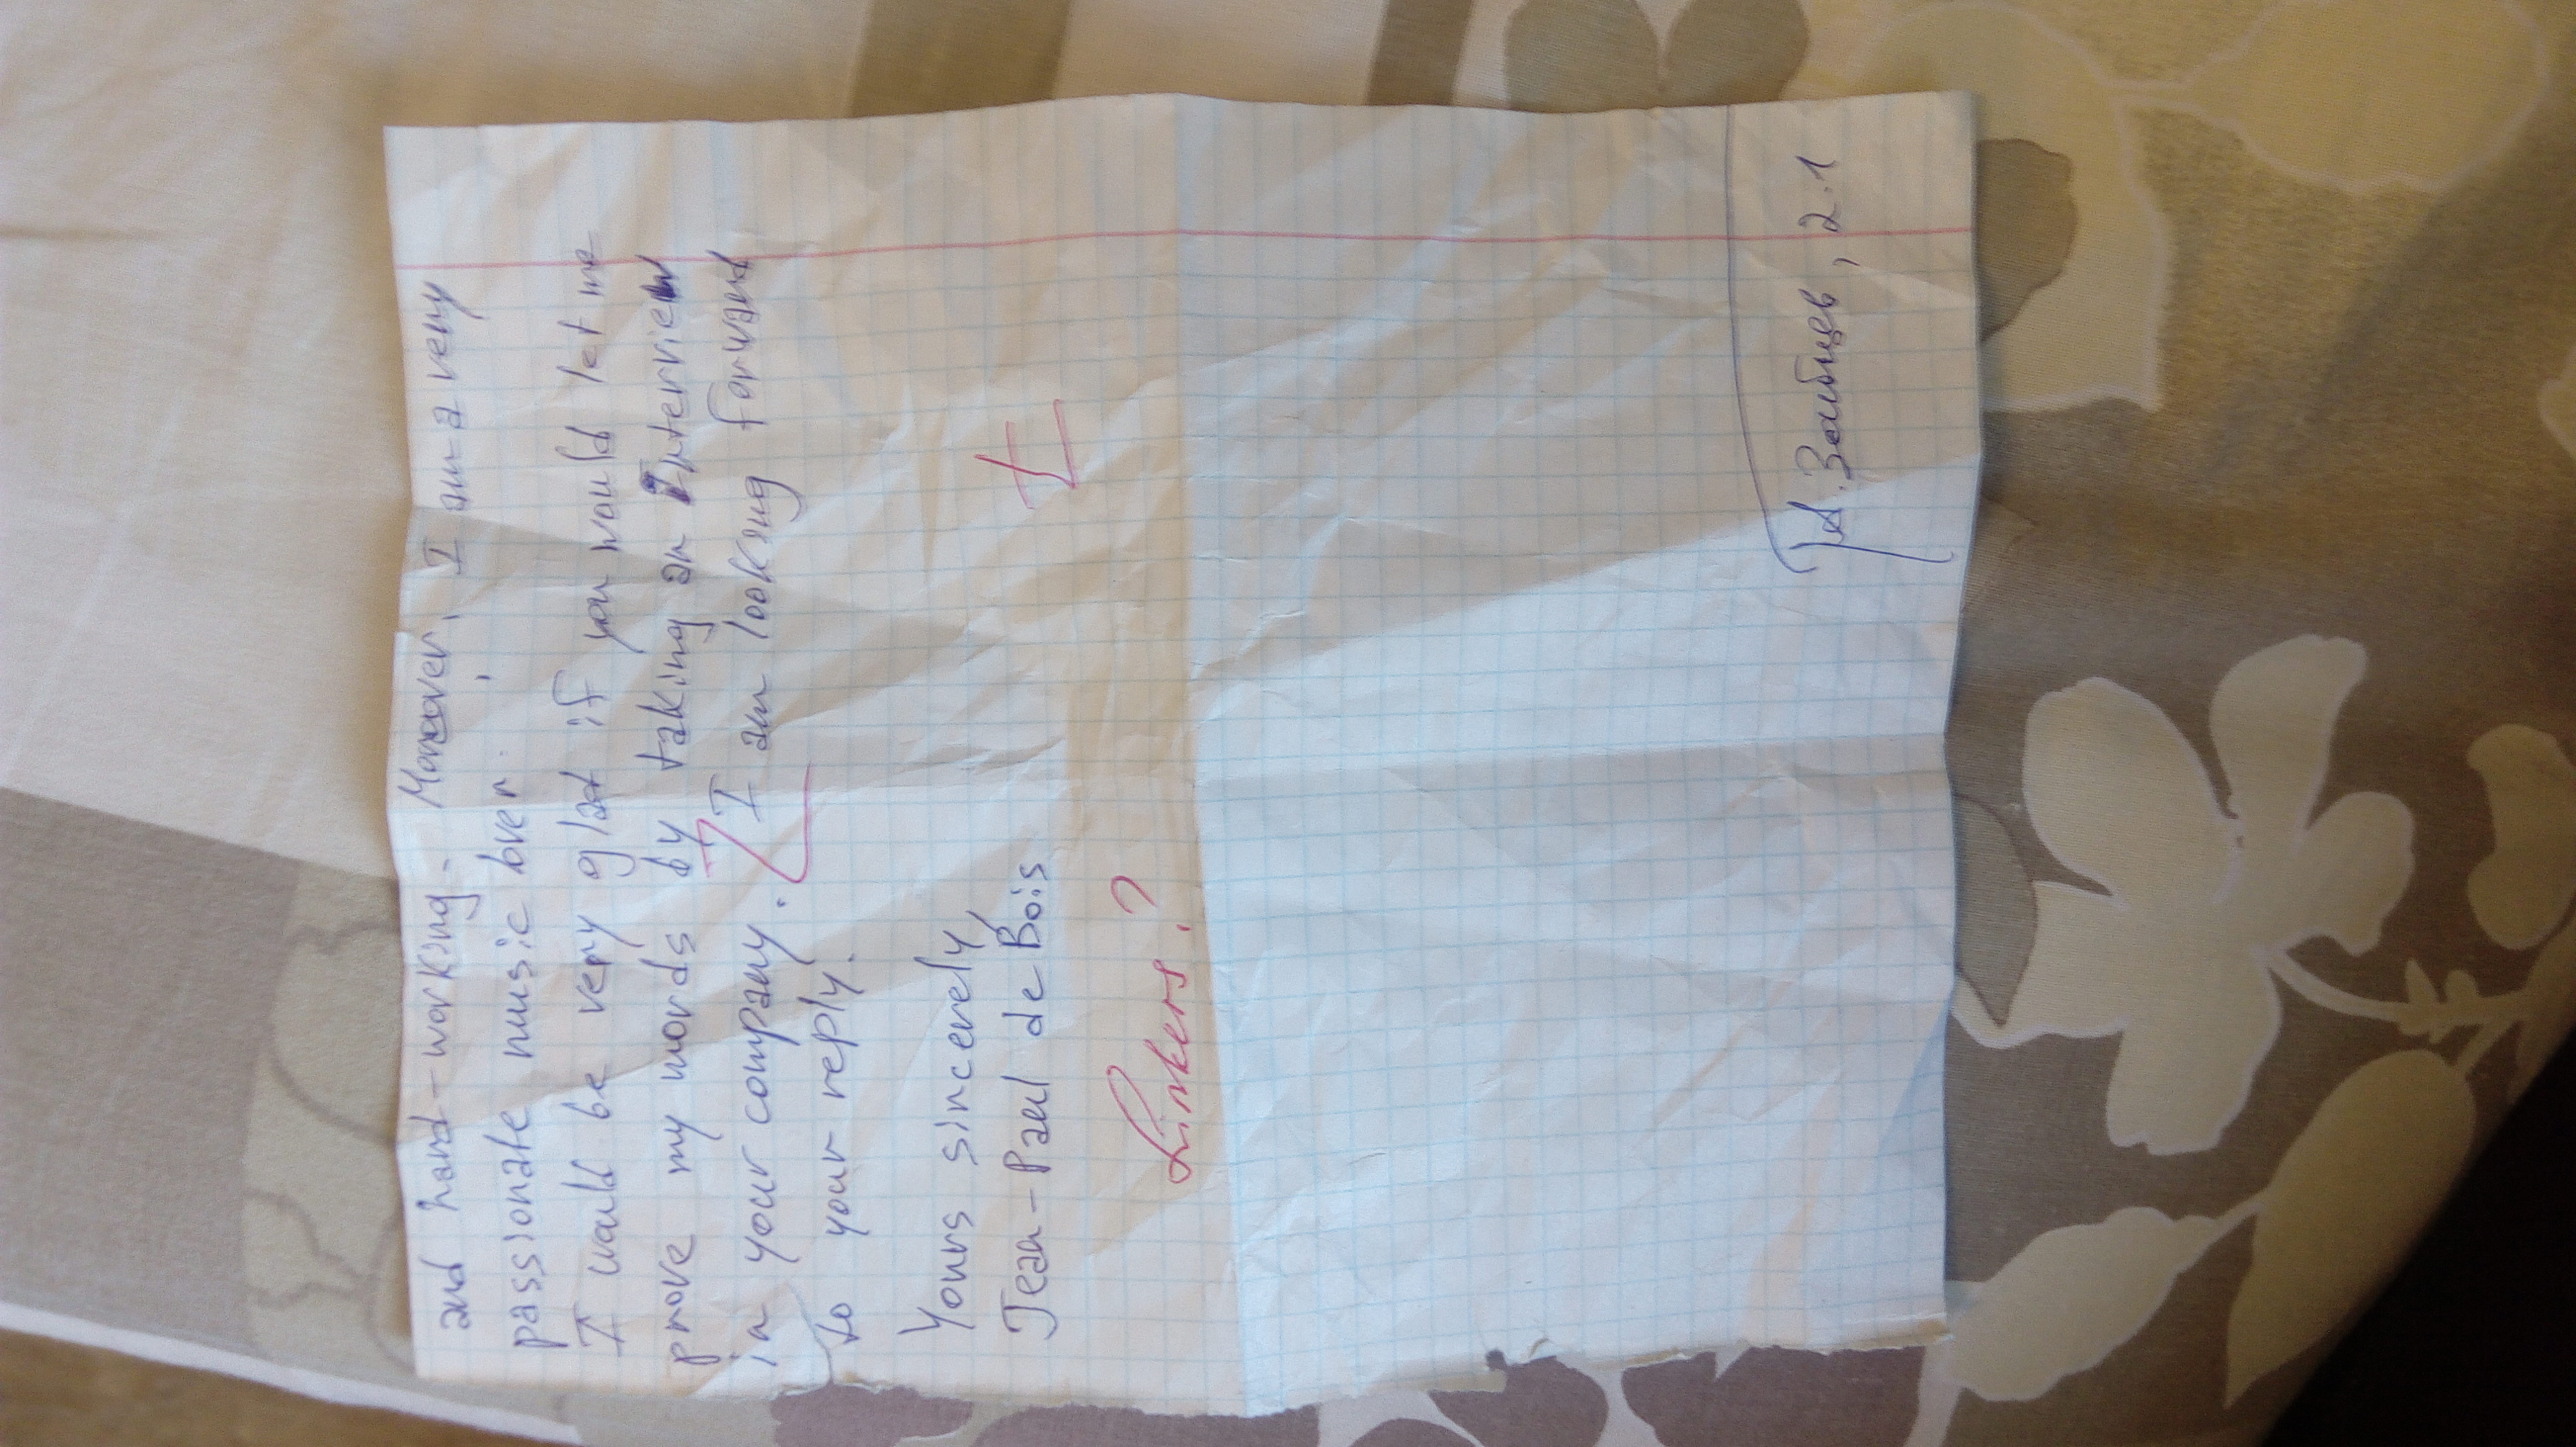 and hard-working. Moreover, I am a very
passionate music lover.
I would be very glad if you would let me
prove my words by taking an interview
in your company. I am looking forward
to your reply.
Yours sincerely,
Jean-Paul de Bois
Linkers?
А. Зайцев, 2.1